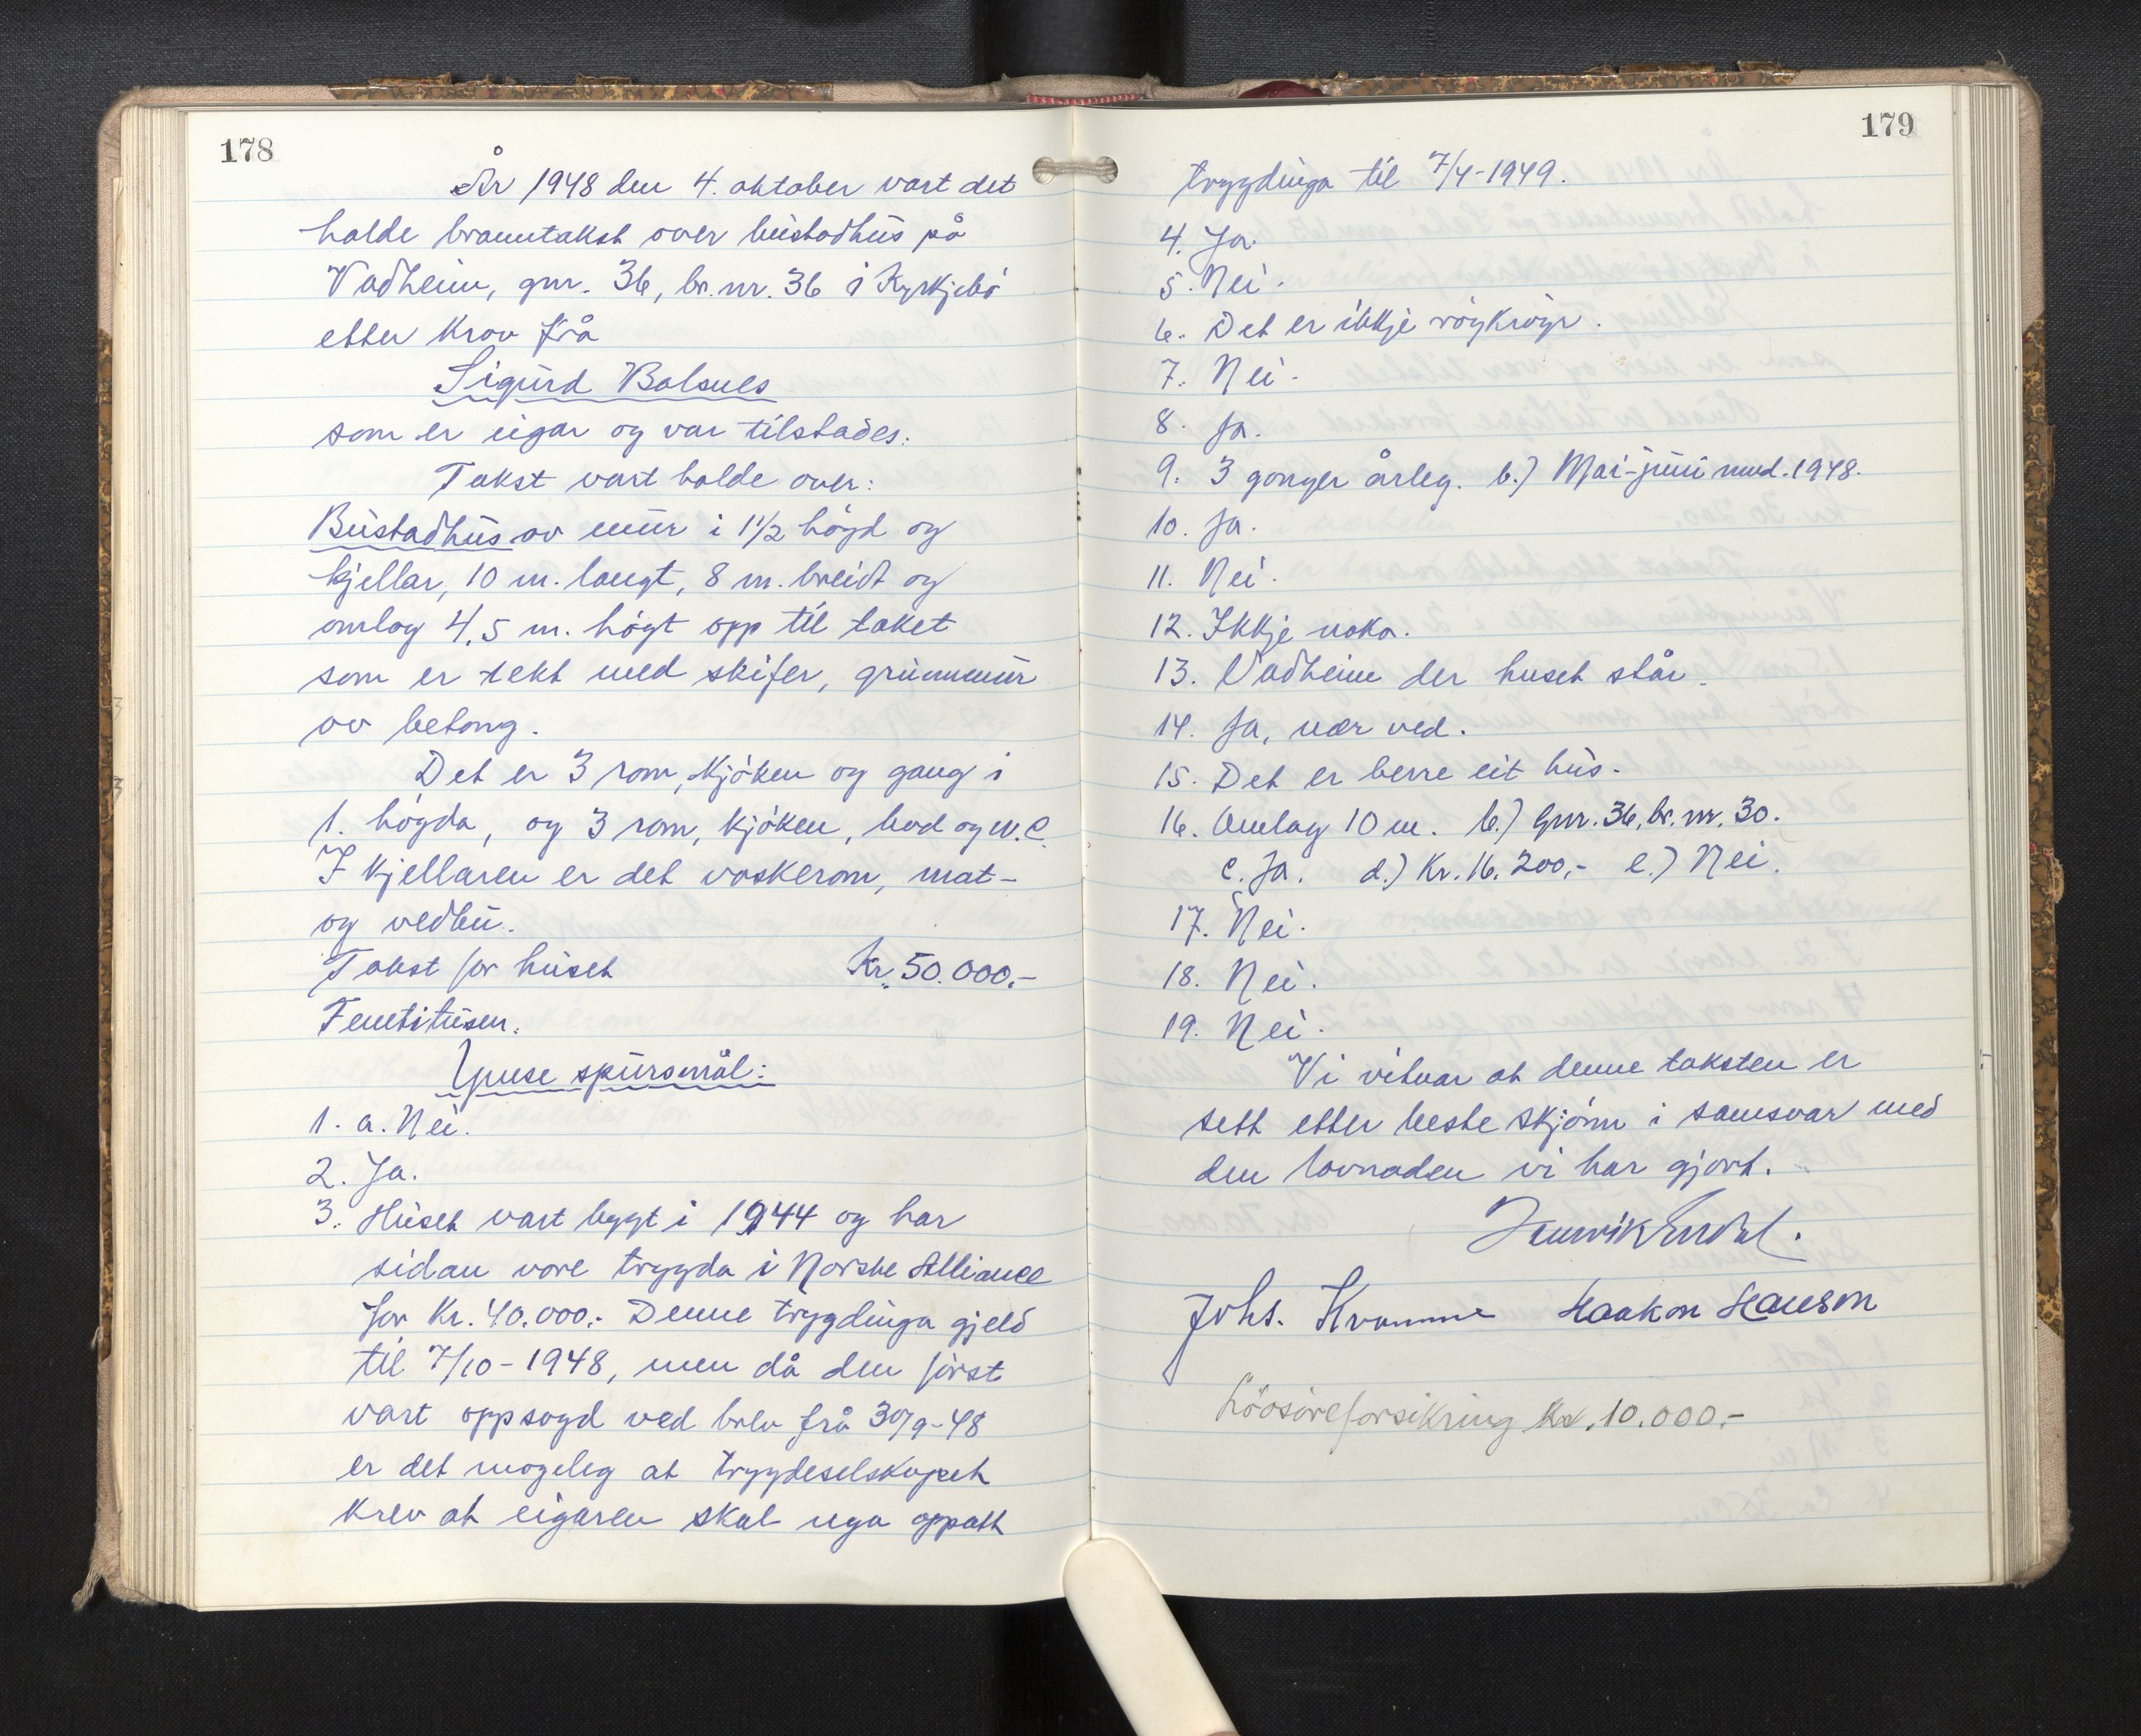 178
År 1948 den 4. oktober vart det
halde branntakst over bustadhus på
Vadheim, gnr. 36, br.nr. 36 i Kyrkjebö
etter krav frå
Sigurd Bolsnes
som er eigar og var tilstades.
Takst vart halde over:
Bustadhus av mur i 1 1/2 högd og
kjellar, 10 m. langt, 8 m. breidt og
omlag 4,5 m. högt opp til taket
som er tekt med skifer, grunnmur
av betong.
Det er 3 rom, kjöken og gang i
1. högda, og 3 rom, kjöken, bod og W.C.
I kjellaren er det vaskerom, mat-
og vedbu.
Takst for huset Kr. 50.000.-
Femtitusen.
Ymse spursmål:
1. a. Nei.
2. Ja.
3. Huset vart bygt i 1944 og har
sidan vore trygda i Norske Alliance
for Kr. 40.000.- Denne trygdinga gjeld
til 7/10-1948, men då den först
vart oppsagd ved brev frå 30/9-48
er det mogeleg at trygdeselskapet
krev at eigaren skal nya oppatt
179
trygdinga til 7/4-1949.
4. Ja.
5. Nei.
6. Det er ikkje röykröyr.
7. Nei.
8. Ja.
9. 3 gonger årleg. b.) Mai-juni mnd. 1948.
10. Ja.
11. Nei.
12. Ikkje noko.
13. Vadheim der huset står.
14. Ja, nær ved.
15. Det er berre eit hus.
16. Omlag 10 m. b.) Gnr. 36, br. nr. 30.
c. Ja. d.) Kr. 16.200,- e.) Nei.
17. Nei.
18. Nei.
19. Nei.
Vi vitnar at denne taksten er
sett etter beste skjönn i samsvar med
den lovnaden vi har gjort.
Henrik
Johs. Kvamme Haakon Hanson
Lösöreforsikring Kr. 10.000.-